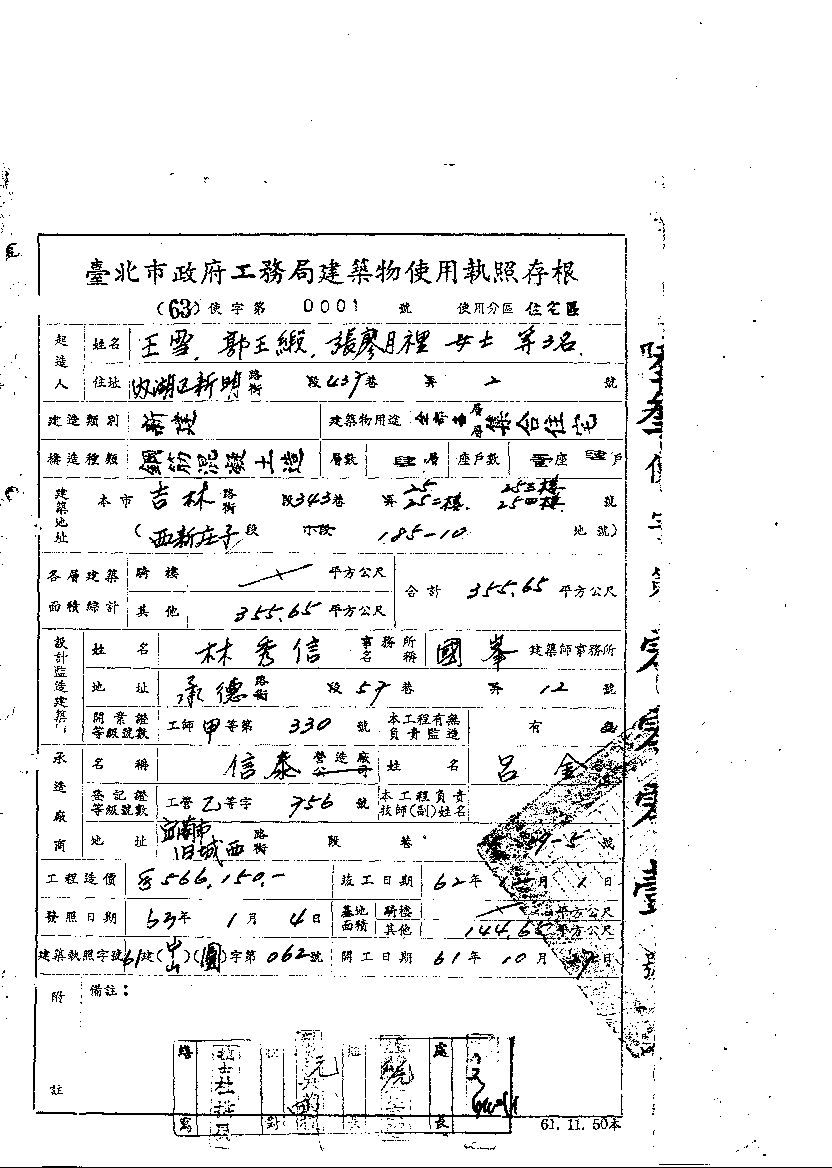 臺北市政府工務局建築物使用執照存根
(63)使字第 0001 號 使用分區 住宅區
起造人 姓名 王雪、郭王緞、張廖月裡 女士 等3名
住址 內湖區新明 路街 段437巷 弄 2 號
建造類別 新建 建築物用途 集合住宅
構造種類 鋼筋混凝土造 層數 肆層 座戶數 壹座 肆戶
建築地址 本市 吉林 路街 段343巷 弄 25 25二樓 25三樓 25四樓 號
(西新庄子段 小段 185-10 地號)
各層建築面積綜計 騎樓 平方公尺 合計 355.65 平方公尺
其他 355.65 平方公尺
設計監造建築 姓名 林秀信 事務所名稱 國峯 建築師事務所
地址 承德 路街 段 57 巷 弄 12 號
開業證等級號數 工師甲等第 330 號 本工程有無負責監造 有
承造廠商 名稱 信泰 營造廠公司 姓名 呂金
登記證等級號數 工營乙等字 756 號 本工程負責技師(副)姓名
地址 旧城西 路街 段 巷 號
工程造價 566,150.- 竣工日期 62年 月 1日
發照日期 63年 1月 4日 基地面積 騎樓 平方公尺
其他 144.65 平方公尺
建築執照字號 61建(中山)(圓)字第 062號 開工日期 61年 10月 日
附註 備註：
61. 11. 50本